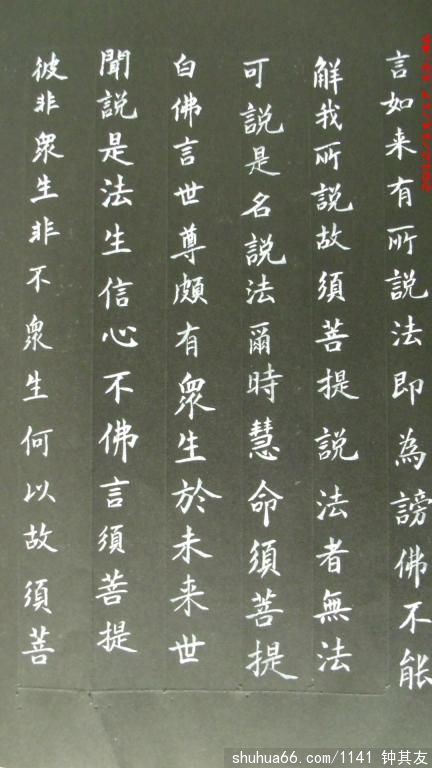 言如来有所說法即為謗佛不能
解我所說故須菩提說法者無法
可說是名說法爾時慧命須菩提
白佛言世尊頗有衆生於未来世
聞說是法生信心不佛言須菩提
彼非衆生非不衆生何以故須菩
shuhua66.com/1141 钟其友